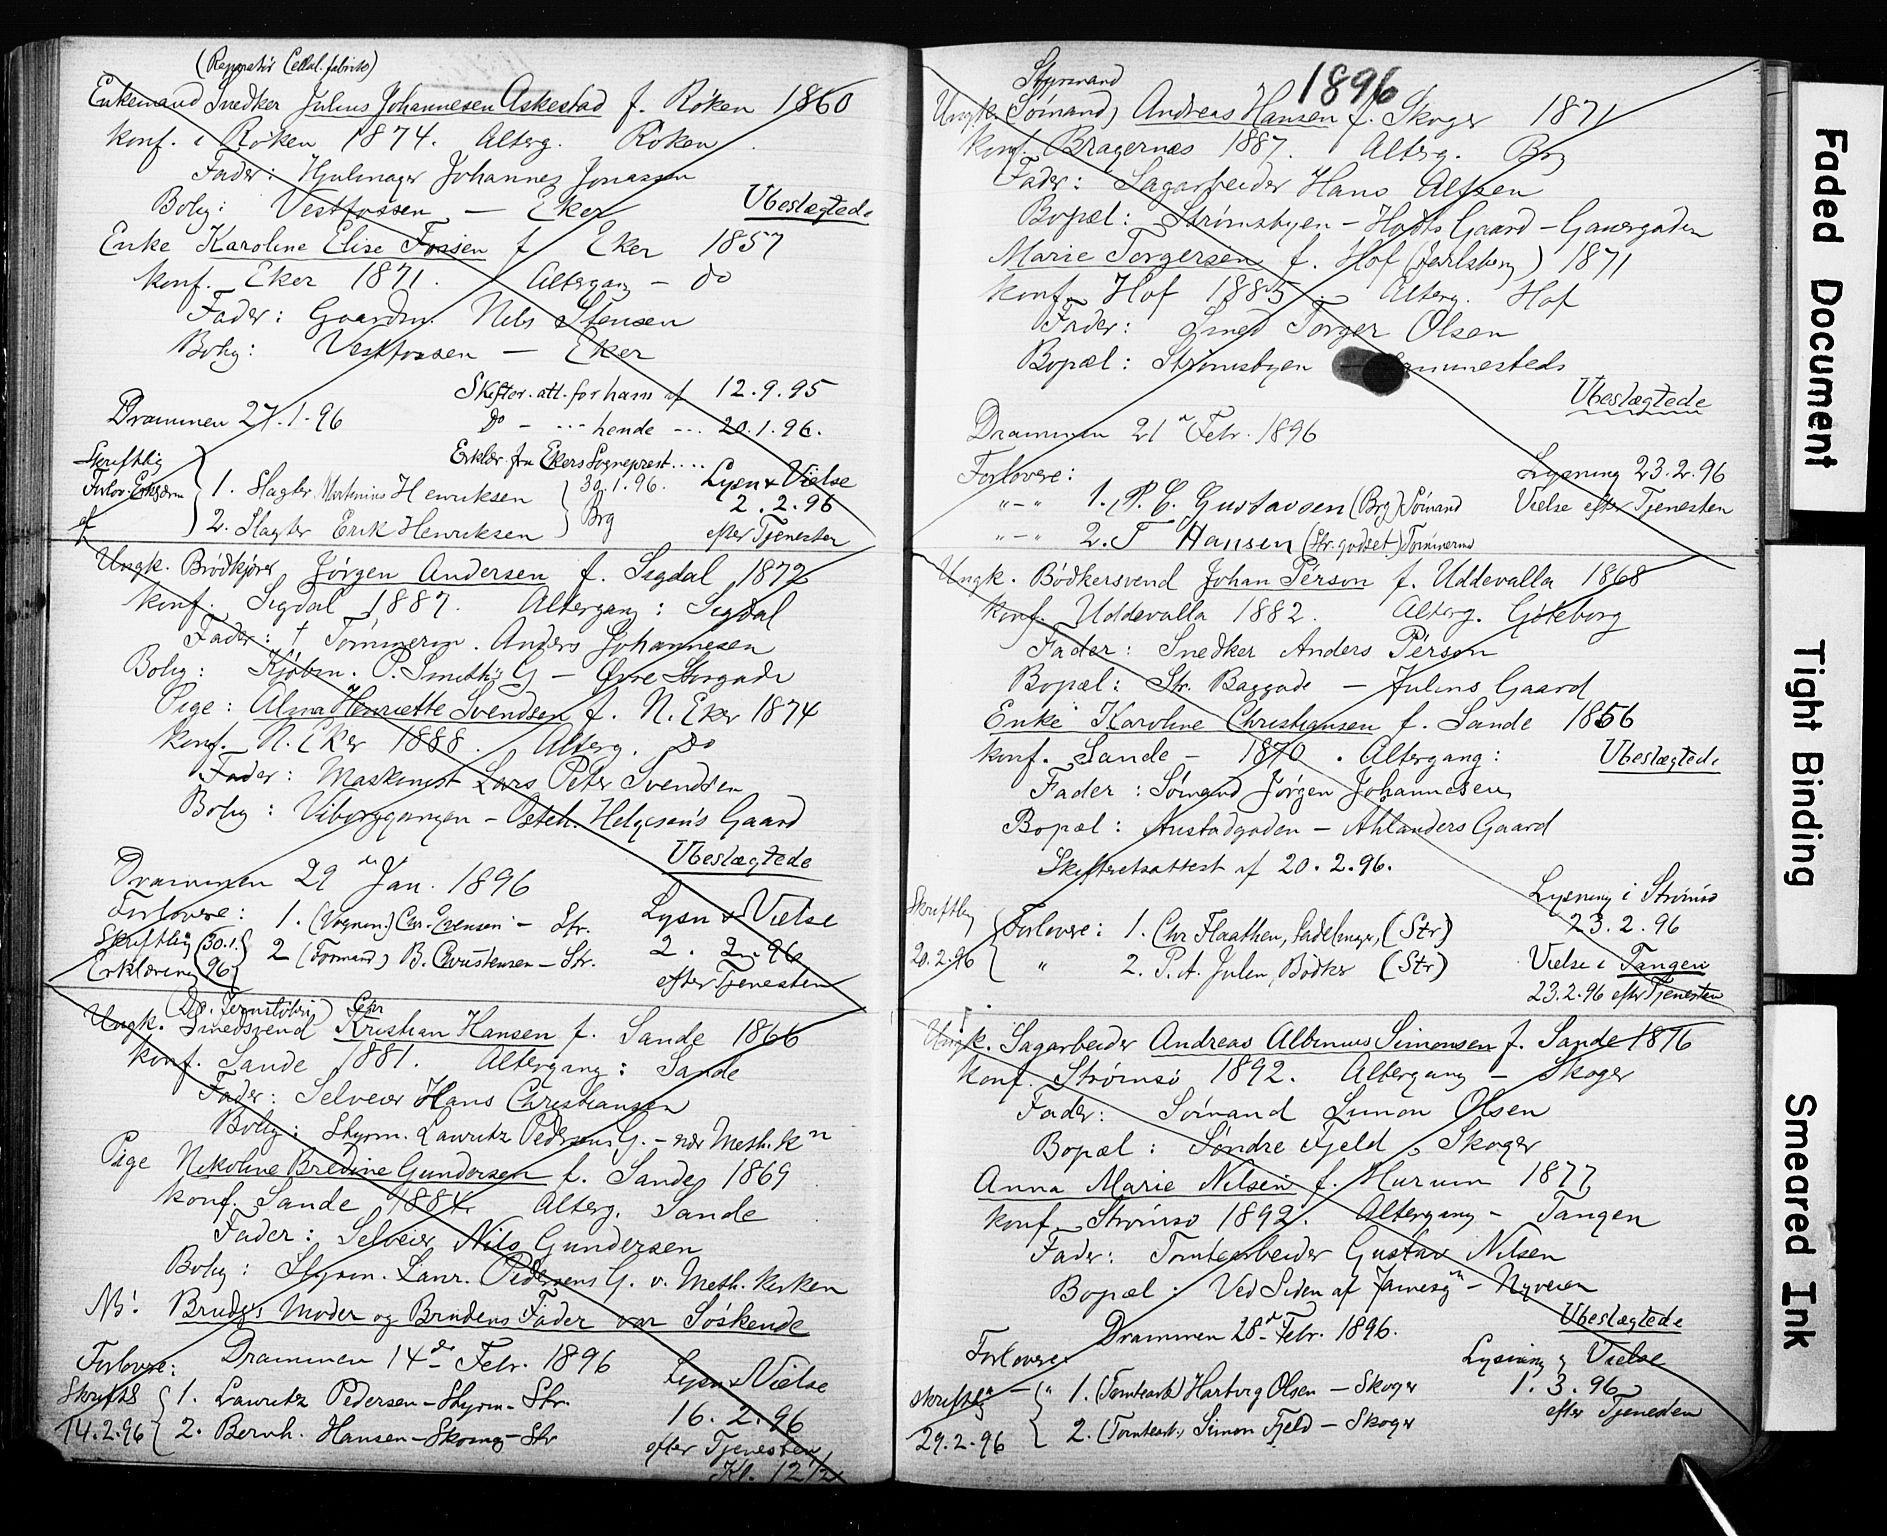 (Reparatør Cellul. fabriks)
Enkemand Snedker Julius Johannesen Askestad f. Røken 1860
konf. i Røken 1874. Alterg. Røken
Fader: Hjulmager Johannes Jonassen
Bolig: Vestfossen — Eker Ubeslægtede
Enke Karoline Elise Fossen f. Eker 1857
konf. Eker 1871. Altergang - do
Fader: Gaardm. Nels Stensen
Bolig: Vestfossen — Eker
Skifter. att. for ham af 12.9.95
Drammen 27.1.96
Do - --- hende --- 20.1.96.
Erklær. fra Ekers Sogneprest....
Skriftlig
Forlov. Erklærn
af
1. Slagter Martinius Henriksen
2. Slagter Erik Henriksen
30.1.96.
Brg
Lysn & Vielse
2.2.96
efter Tjenesten
Ungk. Brødkjører Jørgen Andersen f. Sigdal 1872
konf. Sigdal 1887. Altergang: Sigdal
Fader: † Tømmerm. Anders Johannesen
Bolig: Kjøbm. P. Smiths G — Øvre Storgade
Pige: Alma Henriette Svendsen f. N. Eker 1874
konf. N. Eker 1888. Alterg. do
Fader: Maskinist Lars Peter Svendsen
Bolig: Viborggangen - Helgesens Gaard
Ubeslægtede
Drammen 29 Jan. 1896
Forlovere: 1. (Vognm.) Chr. Evensen - Str.
Skriftlig Erklæring 30.1.96
2 (Formand) B. Christensen - Str.
Lysn & Vielse
2. 2. 96
efter Tjenesten
Ungk. Smedsvend Kristian Hansen f. Sande 1866
konf. Sande 1881. Altergang: Sande
Fader: Selveier Hans Christiansen
Bolig: Styrm. Lauritz Pedersens G. - nær Meth. kn
Pige Nikoline Bredine Gundersen f. Sande 1869
konf. Sande 1884. Alterg. Sande
Fader: Selveier Nils Gundersen
Bolig: Styrm. Laur. Pedersens G. v. Meth. kirken
NB! Brudgs Moder og Brudens Fader var Søskende
Forlovere: Drammen 14de Febr. 1896
Skriftl 14.2.96
1. Lauritz Pedersen - Styrm - Str.
2. Bernh. Hansen - Skomg - Str
Lysn & Vielse
16. 2. 96
efter Tjenesten
Kl. 12 1/2
1896
Styrmand
Ungk. (Sømand) Andreas Hansen f. Skoger 1871
konf. Bragernes 1887. Alterg. Brg
Fader: Sagarbeider Hans Alfsen
Bopæl: Strømsbyen - Holts Gaard - Gausegaden
Marie Torgersen f. Hof (Jarlsberg) 1871
konf. Hof 1885. Alterg. Hof
Fader: Smed Torger Olsen
Bopæl: Strømsbyen - sammesteds
Ubeslægtede
Drammen 21 Febr. 1896
Forlovere:
" - " 1. P. C. Gustavsen (Brg) Sømand
" - " 2. T Hansen (Str. godset) Tømmerm
Lysning 23.2.96
Vielse efter Tjenesten
Ungk. Bødkersvend Johan Person f. Uddevalla 1868
konf. Uddevalla 1882. Alterg. Göteborg
Fader: Snedker Anders Person
Bopæl: Str. Baggade — Julins Gaard
Enke Karoline Christiansen f. Sande 1856
konf. Sande - 1870. Altergang: Ubeslægtede
Fader: Sømand Jørgen Johannesen
Bopæl: Austadgaden - Ahlanders Gaard
Skifteretsattest af 20.2.96.
Skriftlig
20.2.96
Forlovere: 1. Chr Flaathen, Sadelmager, (Str)
" 2. P. A. Julin, Bødker (Str)
Lysning i Strømsø
23.2.96
Vielse i Tangen
23.2.96 efter Tjenesten
Ungk. Sagarbeider Andreas Albinius Simonsen f. Sande 1876
konf. Strømsø 1892. Altergang — Skoger
Fader: Sømand Simon Olsen
Bopæl: Søndre Fjeld, Skoger
Anna Marie Nilsen f. Hurum 1877
konf. Strømsø 1892. Altergang - Tangen
Fader: Tomtearbeider Gustav Nilsen
Bopæl: Ved Siden af - Nyveien
Ubeslægtede
Drammen 28de Febr. 1896.
Forlovere
Skriftlig 29.2.96
1. (Tomtearb) Hartvig Olsen - Skoger
2. (Tomtearb.) Simon Fjeld - Skoger
Lysning & Vielse
1. 3. 96
efter Tjenesten
Faded Document
Tight Binding
Smeared Ink